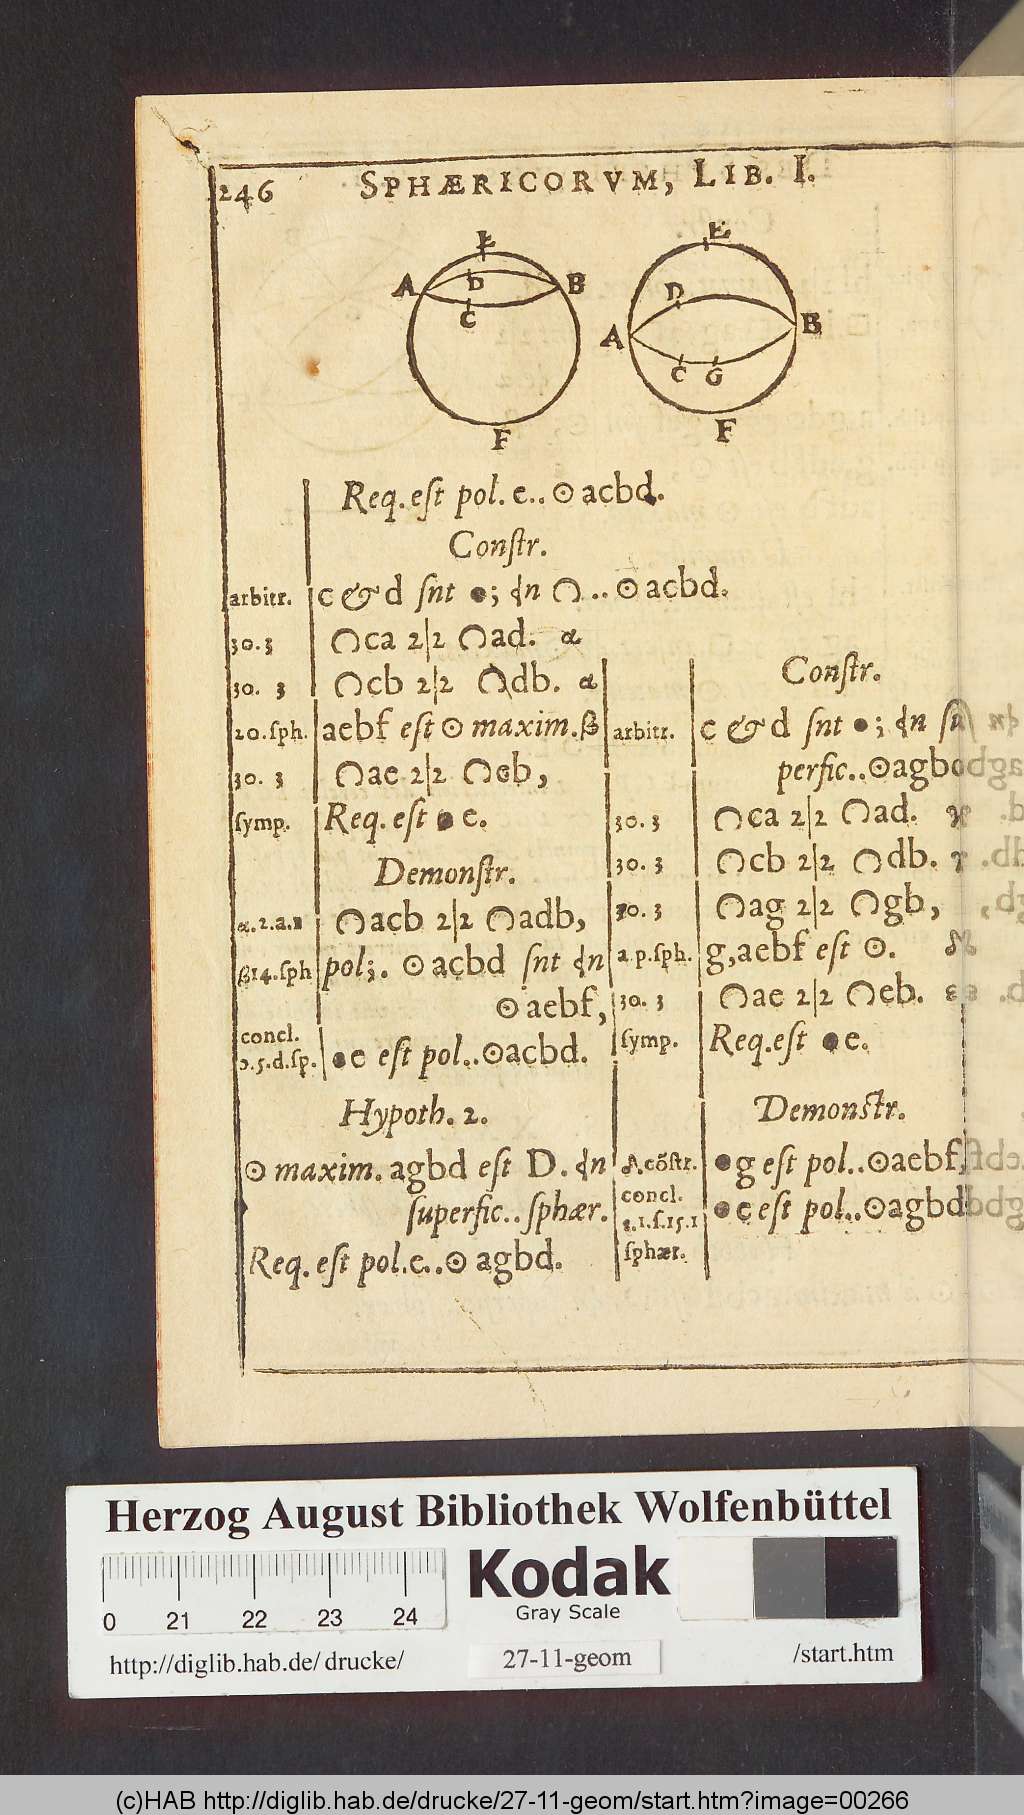 246 SPHÆRICORVM, LIB. I.
E
A D B
C
F
E
D
A B
C G
F
Req. eſt pol. e.. ⊙ acbd.
Conſtr.
arbitr. c & d ſnt ●; ꟈn ◠ .. ⊙ acbd.
30. 3 ◠ca 2|2 ◠ad. α
30. 3 ◠cb 2|2 ◠db. α
20. ſph. aebf eſt ⊙ maxim. β
30. 3 ◠ae 2|2 ◠eb,
ſymp. Req. eſt ● e.
Demonſtr.
α. 2. a. 1 ◠acb 2|2 ◠adb,
β14. ſph pol;. ⊙ acbd ſnt ꟈn
⊙ aebf,
concl.
5. d. ſp. ● e eſt pol.. ⊙acbd.
Hypoth. 2.
⊙ maxim. agbd eſt D. ꟈn
ſuperfic.. ſphær.
Req. eſt pol. e.. ⊙ agbd.
Conſtr.
arbitr. c & d ſnt ●; ꟈn ſu
perfic.. ⊙agbd
30. 3 ◠ca 2|2 ◠ad.
30. 3 ◠cb 2|2 ◠db. γ
30. 3 ◠ag 2|2 ◠gb,
2 p. ſph. g, aebf eſt ⊙.
30. 3 ◠ae 2|2 ◠eb. ε
ſymp. Req. eſt ● e.
Demonſtr.
cōſtr. ● g eſt pol.. ⊙aebf,
concl. ● e eſt pol.. ⊙agbd
1. ſ. 15. 1
ſphær.
Herzog August Bibliothek Wolfenbüttel
0 21 22 23 24
Kodak
Gray Scale
http://diglib.hab.de/drucke/ 27-11-geom /start.htm
(c)HAB http://diglib.hab.de/drucke/27-11-geom/start.htm?image=00266